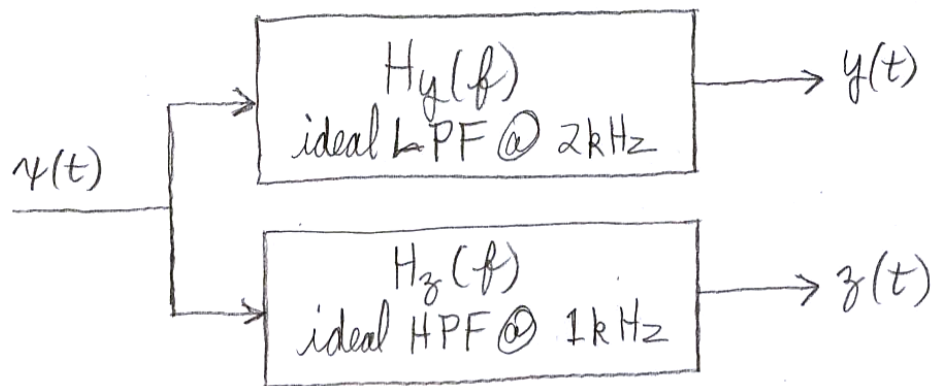 H_y(f)
ideal LPF @ 2kHz
y(t)
ψ(t)
H_z(f)
ideal HPF @ 1kHz
z(t)